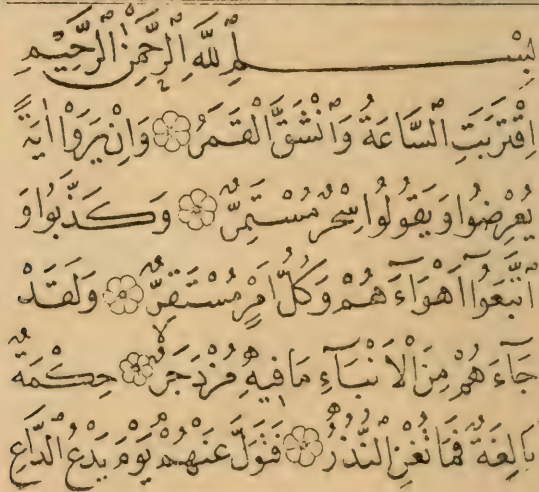 بِسْمِ ٱللَّهِ ٱلرَّحْمٰنِ ٱلرَّحِيمِ
اِقْتَرَبَتِ ٱلسَّاعَةُ وَٱنْشَقَّ ٱلْقَمَرُ ۝ وَاِنْ يَرَوْا اٰيَةً
يُعْرِضُوا وَيَقُولُوا سِحْرٌ مُسْتَمِرٌّ ۝ وَكَذَّبُوا وَ
ٱتَّبَعُوا اَهْوَآءَهُمْ وَكُلُّ اَمْرٍ مُسْتَقِرٌّ ۝ وَلَقَدْ
جَآءَهُمْ مِنَ ٱلْاَنْبَآءِ مَا فِيهِ مُزْدَجَرٌ ۝ حِكْمَةٌ
بَالِغَةٌ فَمَا تُغْنِ ٱلنُّذُرُ ۝ فَتَوَلَّ عَنْهُمْ يَوْمَ يَدْعُ ٱلدَّاعِ